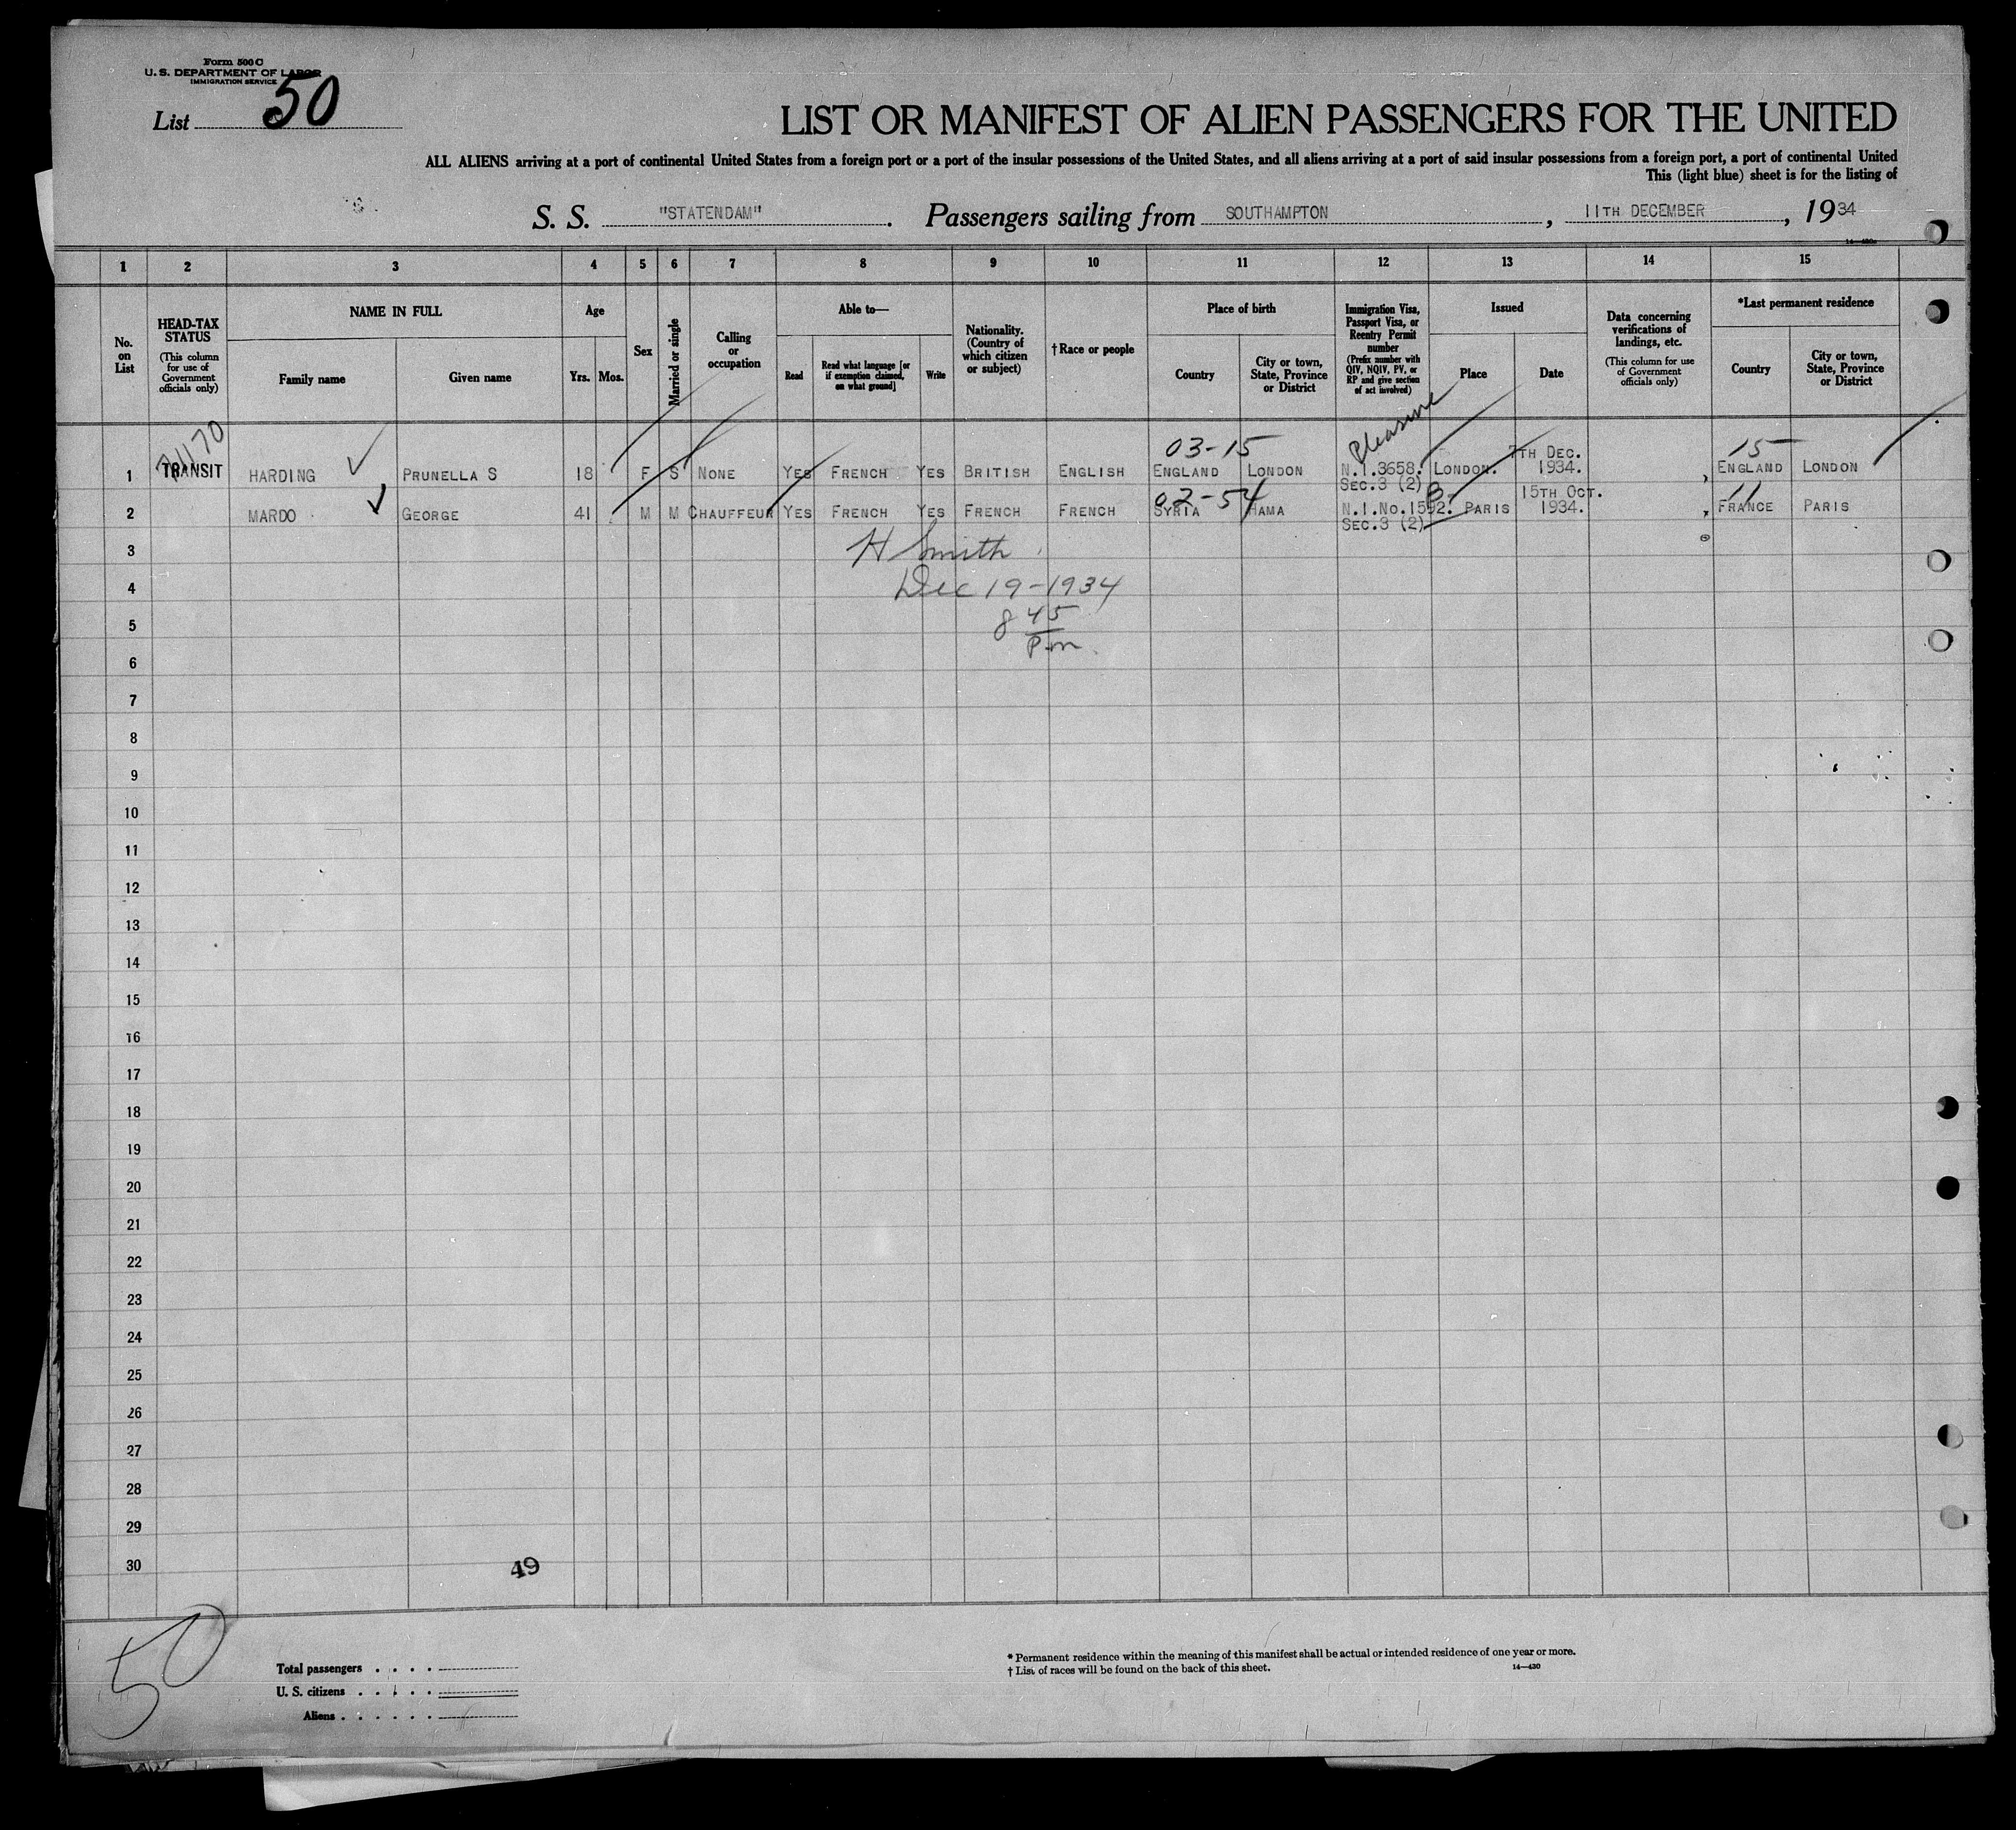 Form 500 C
U. S. DEPARTMENT OF LABOR
IMMIGRATION SERVICE
List 50
LIST OR MANIFEST OF ALIEN PASSENGERS FOR THE UNITED
ALL ALIENS arriving at a port of continental United States from a foreign port or a port of the insular possessions of the United States, and all aliens arriving at a port of said insular possessions from a foreign port, a port of continental United
This (light blue) sheet is for the listing of
S. S. "STATENDAM". Passengers sailing from SOUTHAMPTON, 11TH DECEMBER, 1934
1 2 3 4 5 6 7 8 9 10 11 12 13 14 15
No. on List
HEAD-TAX STATUS
(This column for use of Government officials only)
NAME IN FULL
Family name
Given name
Age
Yrs. Mos.
Sex
Married or single
Calling or occupation
Able to—
Read
Read what language [or if exemption claimed, on what ground]
Write
Nationality. (Country of which citizen or subject)
†Race or people
Place of birth
Country
City or town, State, Province or District
Immigration Visa, Passport Visa, or Reentry Permit number
(Prefix number with QIV, NQIV, PV, or RP and give section of act involved)
Issued
Place
Date
Data concerning verifications of landings, etc.
(This column for use of Government officials only)
*Last permanent residence
Country
City or town, State, Province or District
Pleasure
03-15 7TH DEC. 15
1 TRANSIT HARDING PRUNELLA S 18 F S NONE YES FRENCH YES BRITISH ENGLISH ENGLAND LONDON N.I.3658. LONDON. 1934. ENGLAND LONDON
SEC.3 (2)
02-54 B- 15TH OCT. 11
2 MARDO GEORGE 41 M M CHAUFFEUR YES FRENCH YES FRENCH FRENCH SYRIA HAMA N.I.NO.1592. PARIS 1934. FRANCE PARIS
SEC.3 (2)
3 H Smith
4 Dec 19-1934
5 8 45
6 P.m.
7
8
9
10
11
12
13
14
15
16
17
18
19
20
21
22
23
24
25
26
27
28
29
30
49
50
Total passengers
U. S. citizens
Aliens
* Permanent residence within the meaning of this manifest shall be actual or intended residence of one year or more.
† List of races will be found on the back of this sheet.
14—430